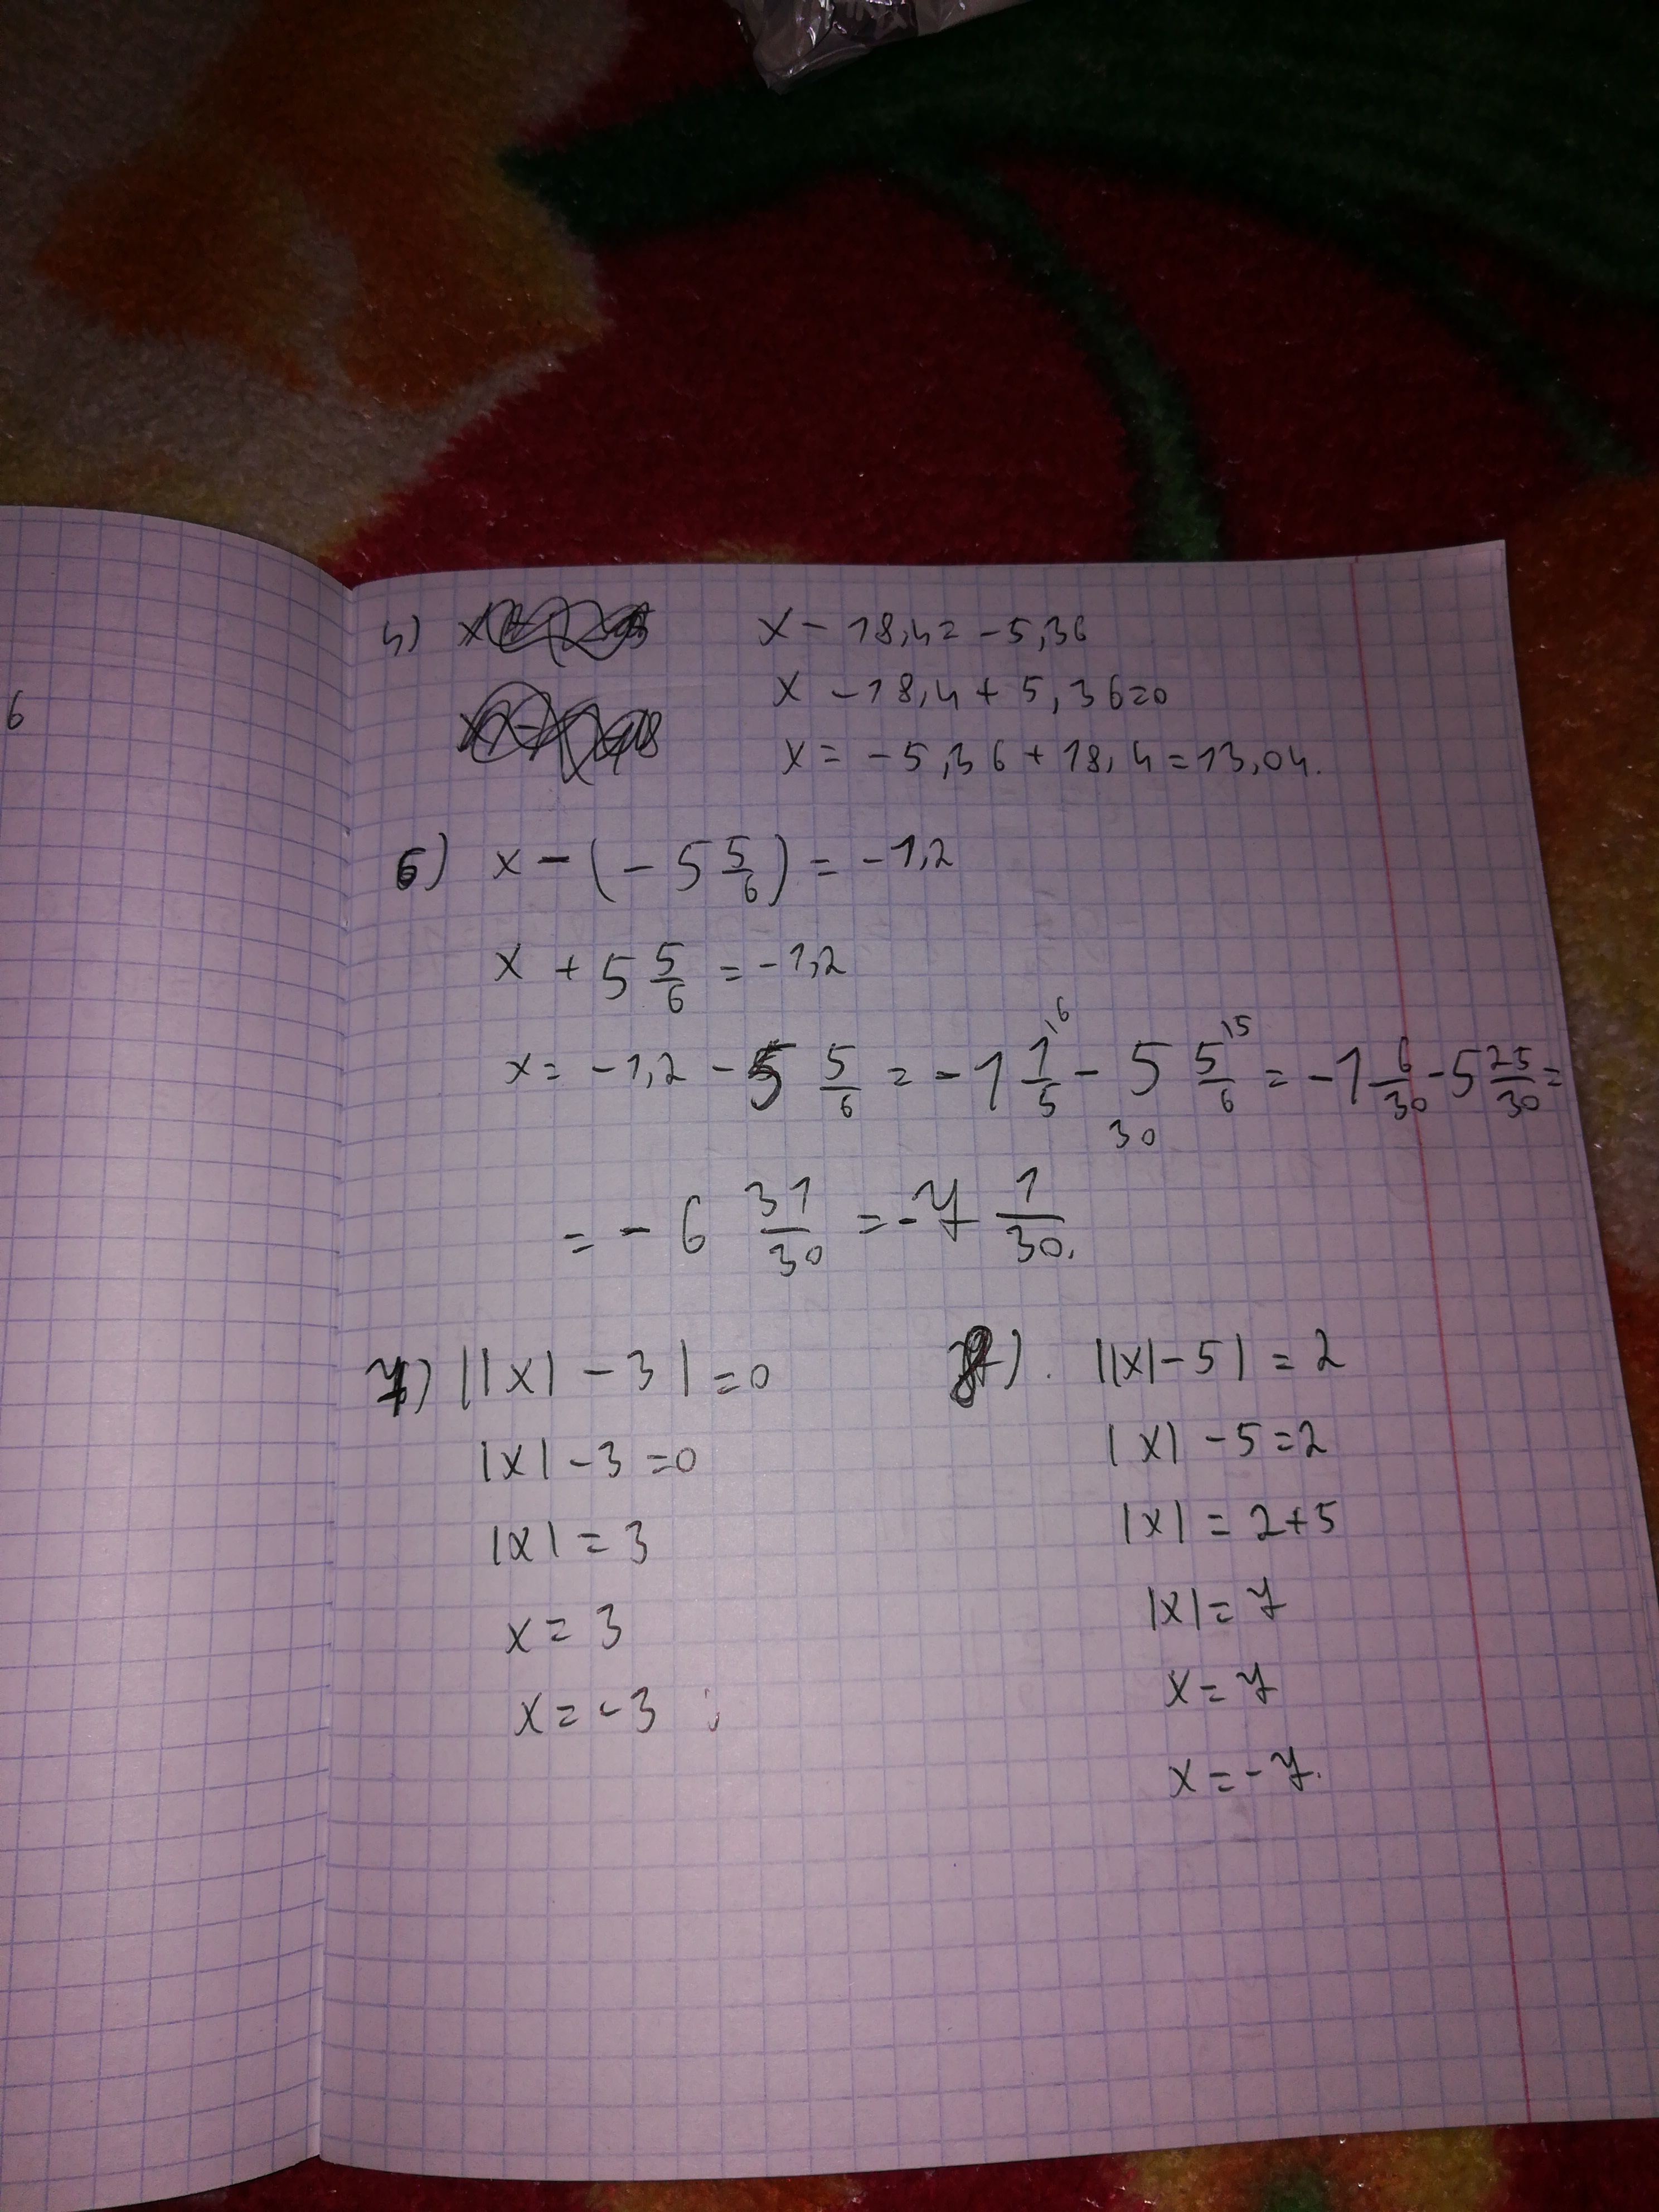 6
4) x - 18,4 = -5,36
x - 18,4 + 5,36=0
x = -5,36 + 18,4 = 13,04.
6) x - (-5 5/6) = -1,2
x + 5 5/6 = -1,2
x = -1,2 - 5 5/6 = -1 1/5 ,6 - 5 5/6 ,5 = -1 6/30 - 5 25/30 =
30
= -6 31/30 = -7 1/30.
7) ||x| - 3| = 0
|x| - 3 = 0
|x| = 3
x = 3
x = -3
). ||x| - 5| = 2
|x| - 5 = 2
|x| = 2+5
|x| = 7
x = 7
x = -7.